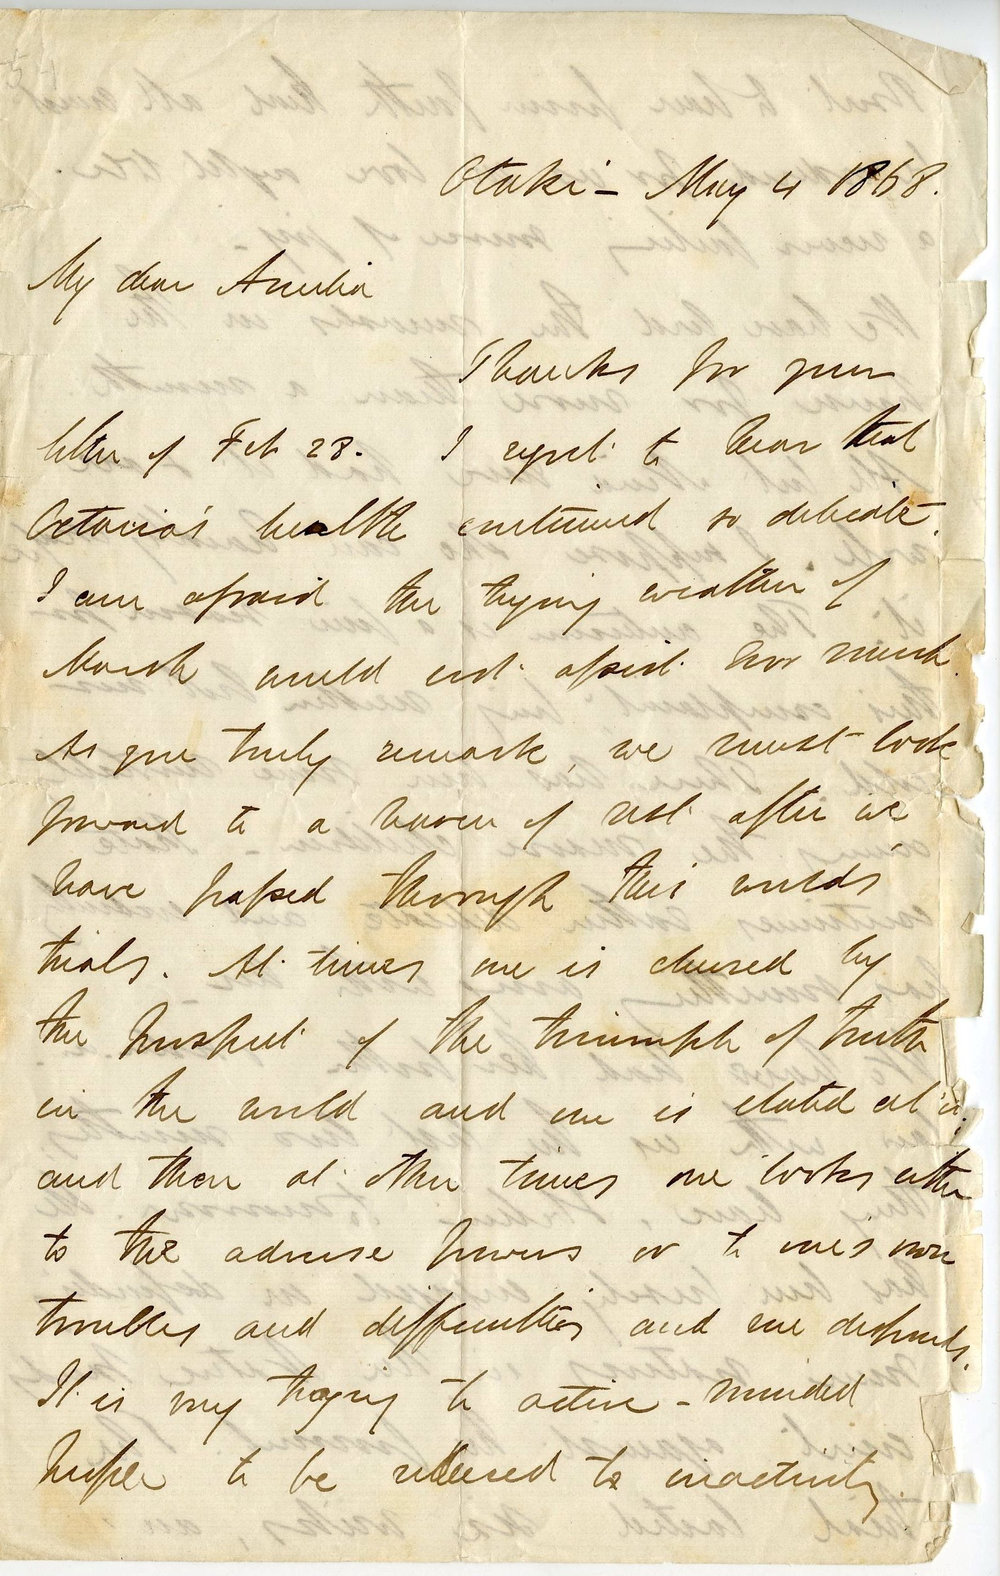 Otaki - May 4 1868.
My dear Amelia
Thanks for your
letter of Feb 28. I regret to hear that
Octavia's health continued so delicate.
I am afraid the trying weather of
March would not assist her much.
As you truly remark, we must look
forward to a haven of rest after we
have passed through this world's
trials. At times one is cheered by
the prospect of the triumph of truth
in the world and one is elated at it,
and then at other times one looks either
to the adverse powers or to one's own
troubles and difficulties and one desponds.
It is very trying to active-minded
people to be reduced to inactivity.